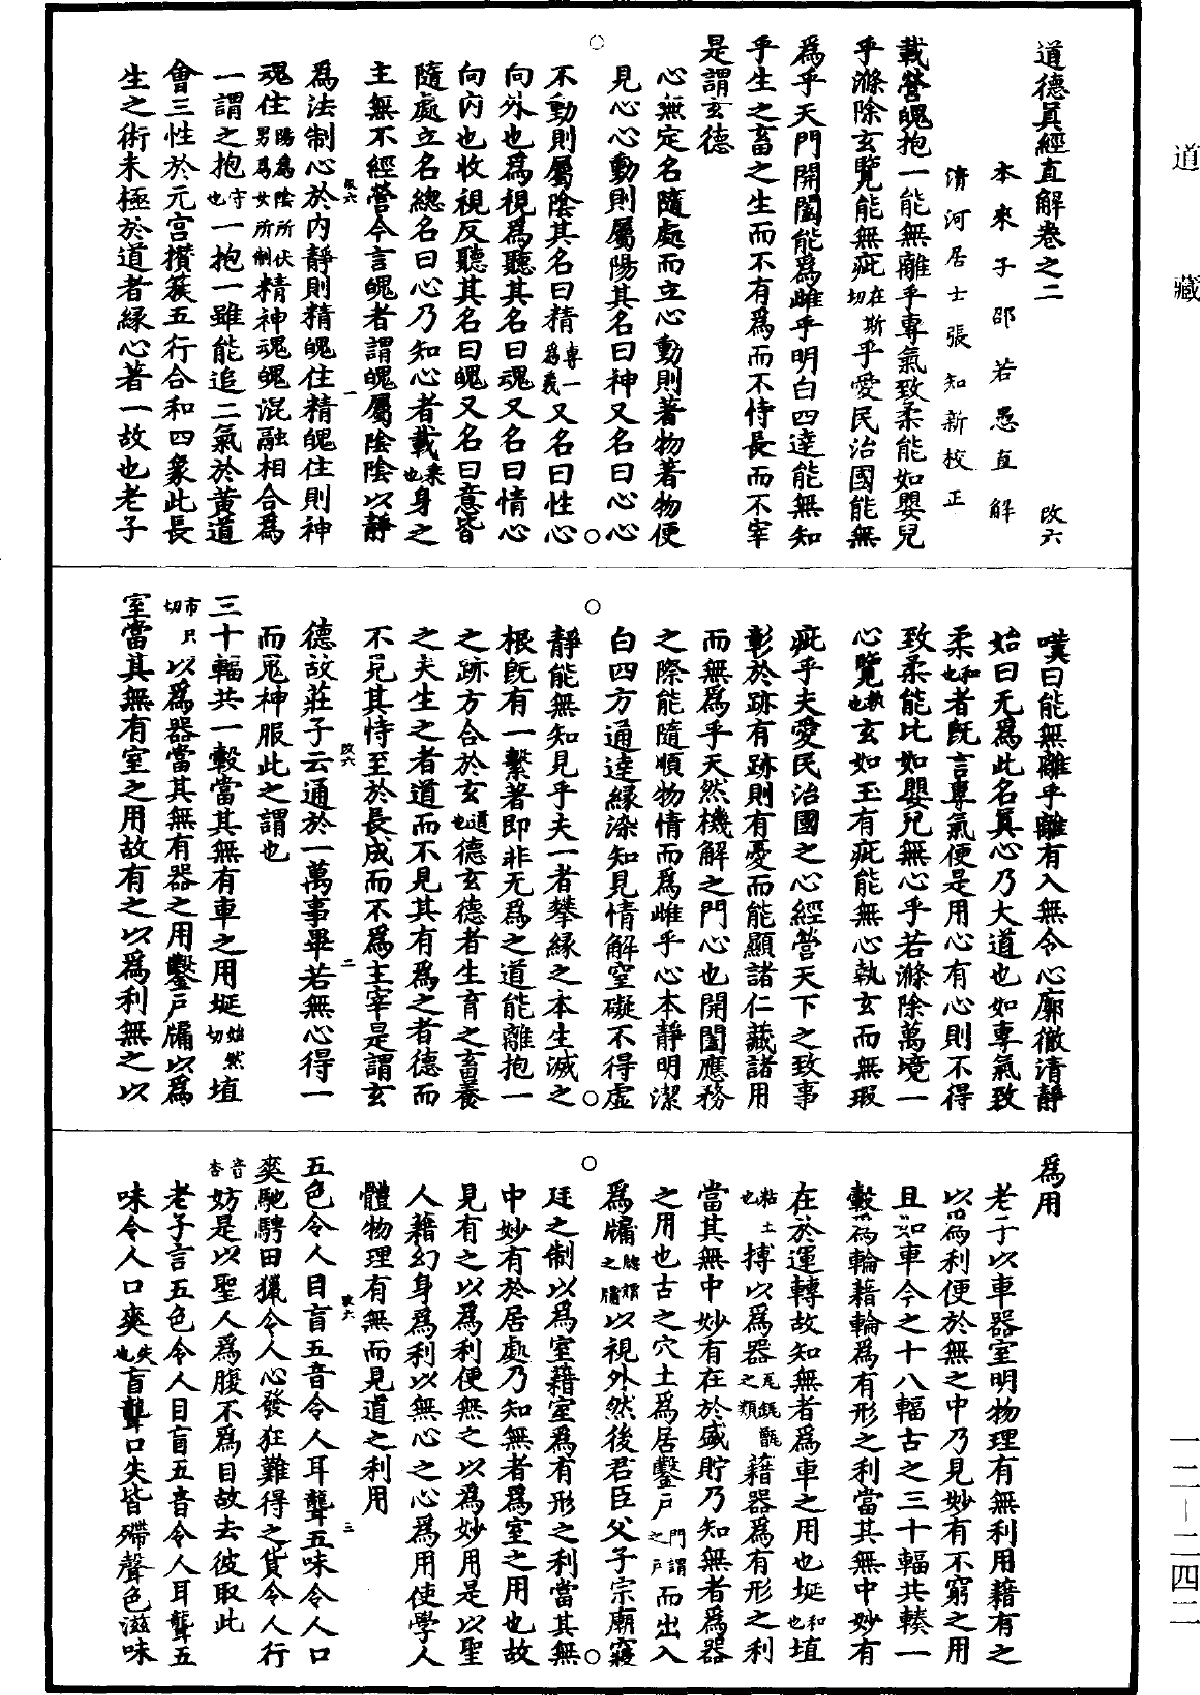 道藏
道德真經直解卷之二 改六
本來子邵若愚直解
清河居士張知新校正
載營魄抱一能無離乎專氣致柔能如嬰兒
乎滌除玄覽能無疵在斯切乎愛民治國能無
為乎天門開闔能為雌乎明白四達能無知
乎生之畜之生而不有為而不恃長而不宰
是謂玄德
心無定名隨處而立心動則著物著物便
見心心動則屬陽其名曰神又名曰心心
不動則屬陰其名曰精專一為義又名曰性心
向外也為視為聽其名曰魂又名曰情心
向內也收視反聽其名曰魄又名曰意皆
隨處立名總名曰心乃知心者載乘也身之
主無不經營今言魄者謂魄屬陰陰以靜
改六 一
為法制心於內靜則精魄住精魄住則神
魂住陽為陰所伏男為女所制精神魂魄混融相合為
一謂之抱守也一抱一雖能追二氣於黃道
會三性於元宮攢簇五行合和四象此長
生之術未極於道者緣心著一故也老子
嘆曰能無離乎離有入無令心廓徹清靜
始曰无為此名真心乃大道也如專氣致
柔和也者既言專氣便是用心有心則不得
致柔能比如嬰兒無心乎若滌除萬境一
心覽執也玄如玉有疵能無心執玄而無瑕
疵乎夫愛民治國之心經營天下之致事
彰於跡有跡則有憂而能顯諸仁藏諸用
而無為乎天然機解之門心也開闔應務
之際能隨順物情而為雌乎心本靜明潔
白四方通達緣染知見情解窒礙不得虛
靜能無知見乎夫一者攀緣之本生滅之
根既有一繫著即非无為之道能離抱一
之跡方合於玄道也德玄德者生育之畜養
之夫生之者道而不見其有為之者德而
不見其恃至於長成而不為主宰是謂玄
改六 二
德故莊子云通於一萬事畢若無心得一
而鬼神服此之謂也
三十輻共一轂當其無有車之用埏始然切埴
市尺切以為器當其無有器之用鑿戶牖以為
室當其無有室之用故有之以為利無之以
為用
老子以車器室明物理有無利用藉有之
以為利便於無之中乃見妙有不窮之用
且如車今之十八輻古之三十輻共輳一
轂為輪藉輪為有形之利當其無中妙有
在於運轉故知無者為車之用也埏和也埴
粘土也摶以為器瓦甒甑之類藉器為有形之利
當其無中妙有在於盛貯乃知無者為器
之用也古之穴土為居鑿戶門謂之戶而出入
為牖牕謂之牖以視外然後君臣父子宗廟寢
廷之制以為室藉室為有形之利當其無
中妙有於居處乃知無者為室之用也故
見有之以為利便無之以為妙用是以聖
人藉幻身為利以無心之心為用使學人
體物理有無而見道之利用
改六 三
五色令人目盲五音令人耳聾五味令人口
爽馳騁田獵令人心發狂難得之貨令人行
音杏妨是以聖人為腹不為目故去彼取此
老子言五色令人目盲五音令人耳聾五
味令人口爽失也盲聾口失皆殢聲色滋味
一二-二四二